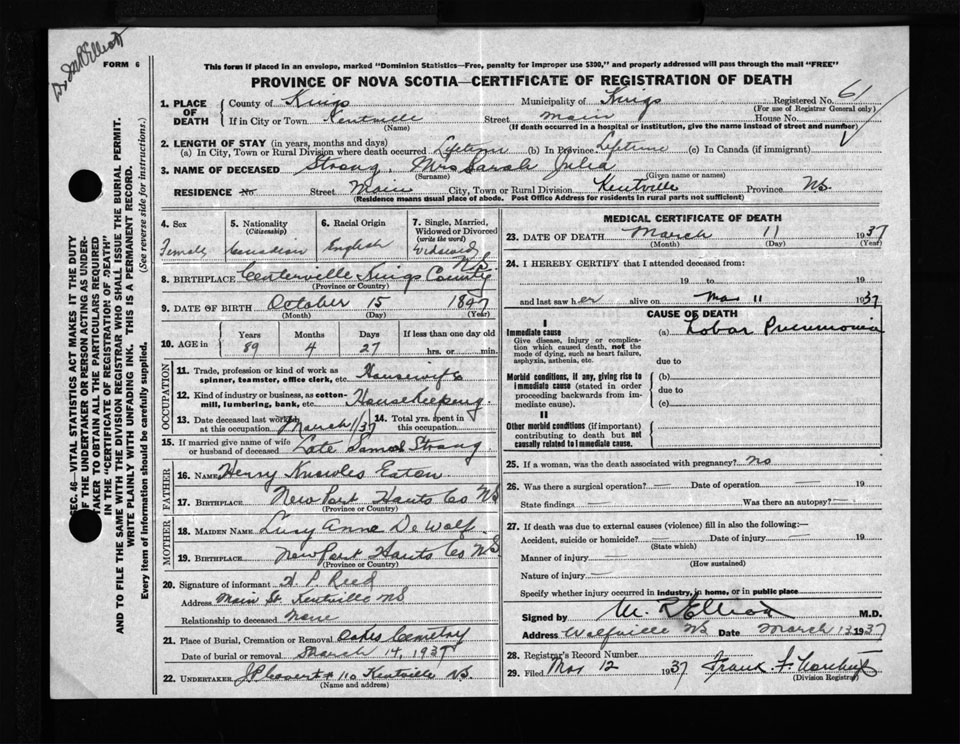 Dr. M R Elliott
FORM 6
This form if placed in an envelope, marked "Dominion Statistics—Free, penalty for improper use $300," and properly addressed will pass through the mail "FREE"
PROVINCE OF NOVA SCOTIA—CERTIFICATE OF REGISTRATION OF DEATH
SEC. 46—VITAL STATISTICS ACT MAKES IT THE DUTY
OF THE UNDERTAKER OR PERSON ACTING AS UNDER-
TAKER TO OBTAIN ALL THE PARTICULARS REQUIRED
IN THE "CERTIFICATE OF REGISTRATION OF DEATH"
AND TO FILE THE SAME WITH THE DIVISION REGISTRAR WHO SHALL ISSUE THE BURIAL PERMIT.
WRITE PLAINLY WITH UNFADING INK. THIS IS A PERMANENT RECORD.
Every item of Information should be carefully supplied. (See reverse side for Instructions.)
1. PLACE OF DEATH County of Kings Municipality of Kings Registered No. 61
(For use of Registrar General only)
If in City or Town Kentville Street Main House No.
(Name) (If death occurred in a hospital or institution, give the name instead of street and number)
2. LENGTH OF STAY (in years, months and days)
(a) In City, Town or Rural Division where death occurred Lifetime (b) In Province Lifetime (c) In Canada (if immigrant)
3. NAME OF DECEASED Strong, Mrs Sarah Julia
(Surname) (Given name or names)
RESIDENCE No. Street Main City, Town or Rural Division Kentville Province NS.
(Residence means usual place of abode. Post Office Address for residents in rural parts not sufficient)
4. Sex Female
5. Nationality (Citizenship) Canadian
6. Racial Origin English
7. Single, Married, Widowed or Divorced (write the word) Widowed
8. BIRTHPLACE Centerville Kings County N.S.
(Province or Country)
9. DATE OF BIRTH October 15 1847
(Month) (Day) (Year)
10. AGE in Years 89 Months 4 Days 27 If less than one day old hrs. or min.
OCCUPATION
11. Trade, profession or kind of work as spinner, teamster, office clerk, etc. Housewife
12. Kind of industry or business, as cotton-mill, lumbering, bank, etc. Housekeeping
13. Date deceased last worked at this occupation March 1/37
14. Total yrs. spent in this occupation
15. If married give name of wife or husband of deceased Late Samuel Strong
FATHER
16. Name Henry Knowles Eaton
17. Birthplace New Port Hants Co NS
(Province or Country)
MOTHER
18. Maiden Name Lucy Anne DeWolf
19. Birthplace New Port Hants Co NS
(Province or Country)
20. Signature of informant H. P. Reed
Address Main St Kentville NS
Relationship to deceased None
21. Place of Burial, Cremation or Removal Oakes Cemetery
Date of burial or removal March 14, 1937
22. Undertaker Kentville NS.
(Name and address)
MEDICAL CERTIFICATE OF DEATH
23. DATE OF DEATH March 11 1937
(Month) (Day) (Year)
24. I HEREBY CERTIFY that I attended deceased from:
19 to 19
and last saw her alive on Mar 11 1937
CAUSE OF DEATH
I
Immediate cause (a) Lobar Pneumonia
Give disease, injury or complica-
tion which caused death, not the
mode of dying, such as heart failure,
asphyxia, asthenia, etc. due to
Morbid conditions, if any, giving rise to (b)
immediate cause (stated in order due to
proceeding backwards from im- (c)
mediate cause).
II
Other morbid conditions (if important)
contributing to death but not
causally related to immediate cause.
25. If a woman, was the death associated with pregnancy? no
26. Was there a surgical operation? — Date of operation — 19
State findings — Was there an autopsy? —
27. If death was due to external causes (violence) fill in also the following:—
Accident, suicide or homicide? — Date of injury — 19
(State which)
Manner of injury —
(How sustained)
Nature of injury —
Specify whether injury occurred in industry, in home, or in public place
Signed by M. R. Elliott M.D.
Address Wolfville NS Date March 13 1937
28. Registrar's Record Number
29. Filed Mar 12 1937 Frank F.
(Division Registrar)